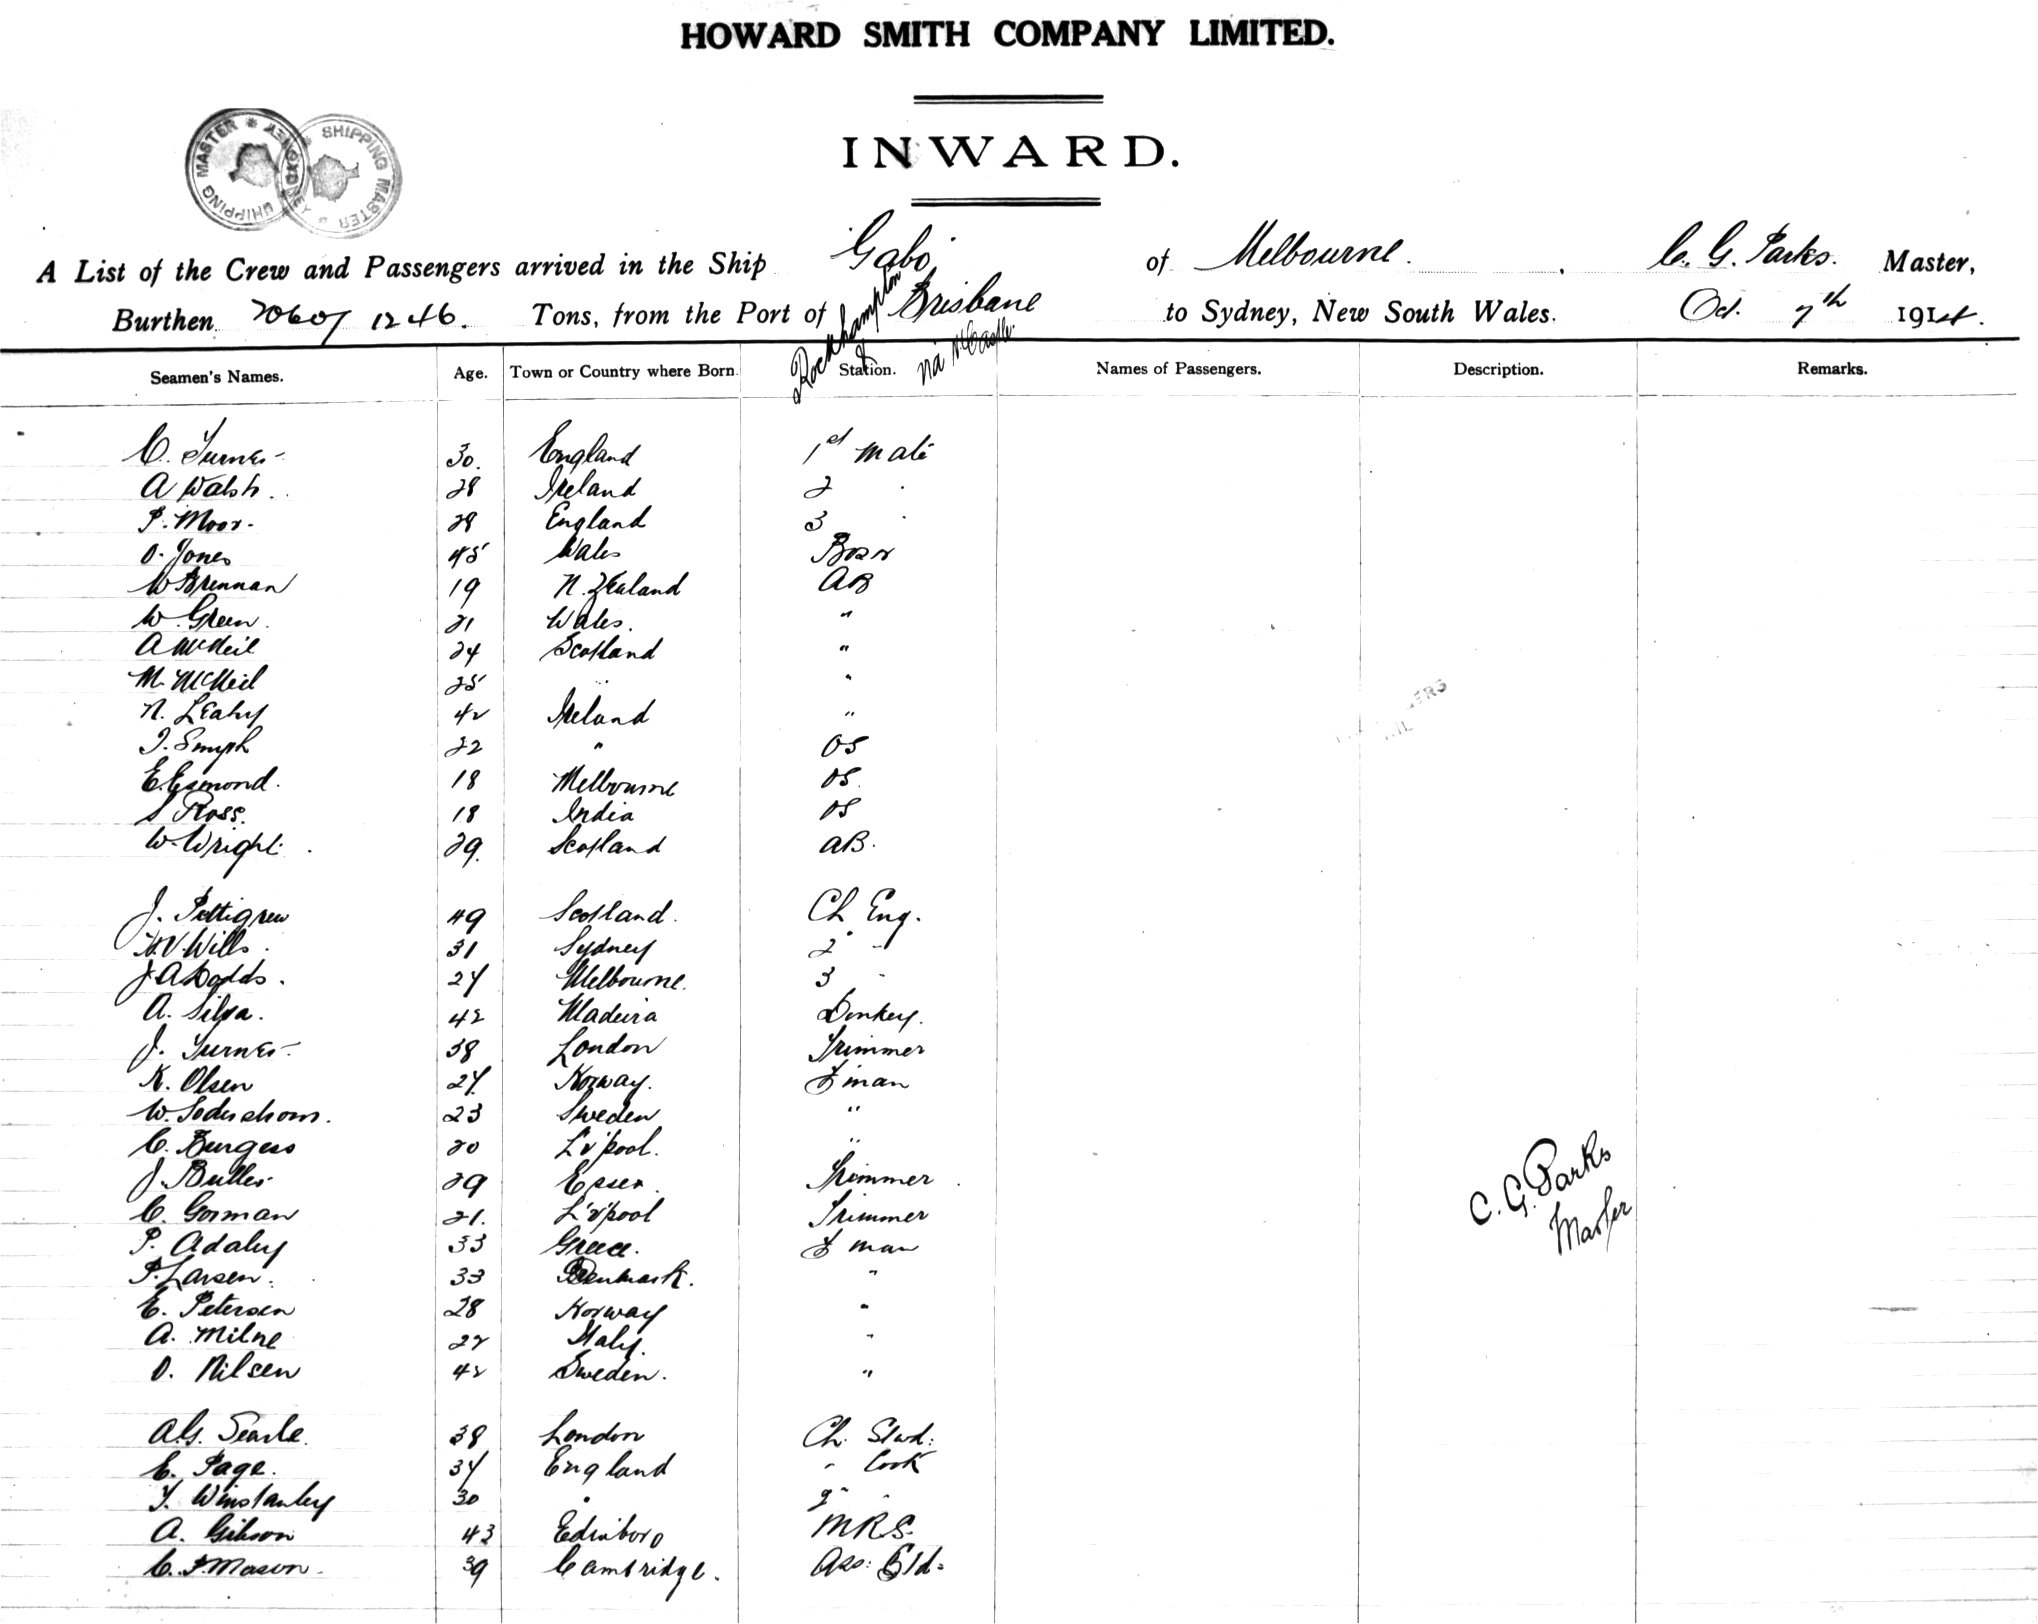 HOWARD SMITH COMPANY LIMITED.
INWARD.
SHIPPING MASTER * SYDNEY *
SHIPPING MASTER * SYDNEY
A List of the Crew and Passengers arrived in the Ship "Gabo" of Melbourne. C. G. Parks. Master,
Burthen 2060/1246. Tons, from the Port of Rockhampton & Brisbane via N'Castle to Sydney, New South Wales. Oct. 7th 1914.
Seamen's Names. Age. Town or Country where Born. Station. Names of Passengers. Description. Remarks.
C. Turner 30. England 1st mate
A Walsh. 28 Ireland 2 "
P. Moor. 28 England 3 "
O. Jones 45 Wales Bosn
W Brennan 19 N. Zealand AB
W. Green. 21 Wales. "
A McNeil 24 Scotland "
M. McNeil 25 " "
N. Leahy 42 Ireland "
J. Smyth 22 " OS
E. Esmond. 18 Melbourne OS.
S Ross. 18 India OS
W. Wright. 29. Scotland AB.
J. Pettigrew 49 Scotland. Ch Eng.
Wills. 31 Sydney 2 "
J. A Dodds. 27 Melbourne. 3 "
A. Silva. 42 Madeira Donkey.
J. Turner 38 London Trimmer
K. Olsen 27. Norway. F man
W. Soderstrom. 23 Sweden "
C. Burgess 20 L'pool. "
J. Butler 29 Essex. Trimmer
C. Gorman 21. L'pool Trimmer
P. Adaly 33 Greece. F man
P. Larsen. 33 Denmark. "
E. Petersen 28 Norway "
A. Milne 22 Italy. "
O. Nilsen 42 Sweden. "
C. G. Parks
Master
A.G. Searle. 38 London Ch. Stwd:
E. Page. 34 England " Cook
T. Winstanley 30 " 2 "
A. Gibson 43 Edinboro M.R.S.
C. F. Mason. 39 Cambridge. Ass: Std.